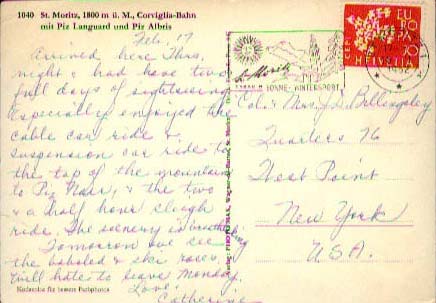 1040 St. Moritz, 1800 m ü. M., Corviglia-Bahn
mit Piz Languard und Piz Albris
Feb. 17
Arrived here Thurs.
night & had have two
full days of sightseeing
Especially enjoyed the
cable car ride &
suspension car ride to
the top of the mountain
to Piz Nair, & the two
& a half hour sleigh
ride. The scenery is breathtaking
Tomorrow we see
the bobsled & ski races.
Will hate to leave Monday.
Love
Catherine
Kodacolor für bessere Farbphotos
St. Moritz
SONNE - WINTERSPORT
EUROPA
CEPT
HELVETIA
Col. & Mrs. J. D. Billingsley
Quarters 76
West Point
New York
U.S.A.